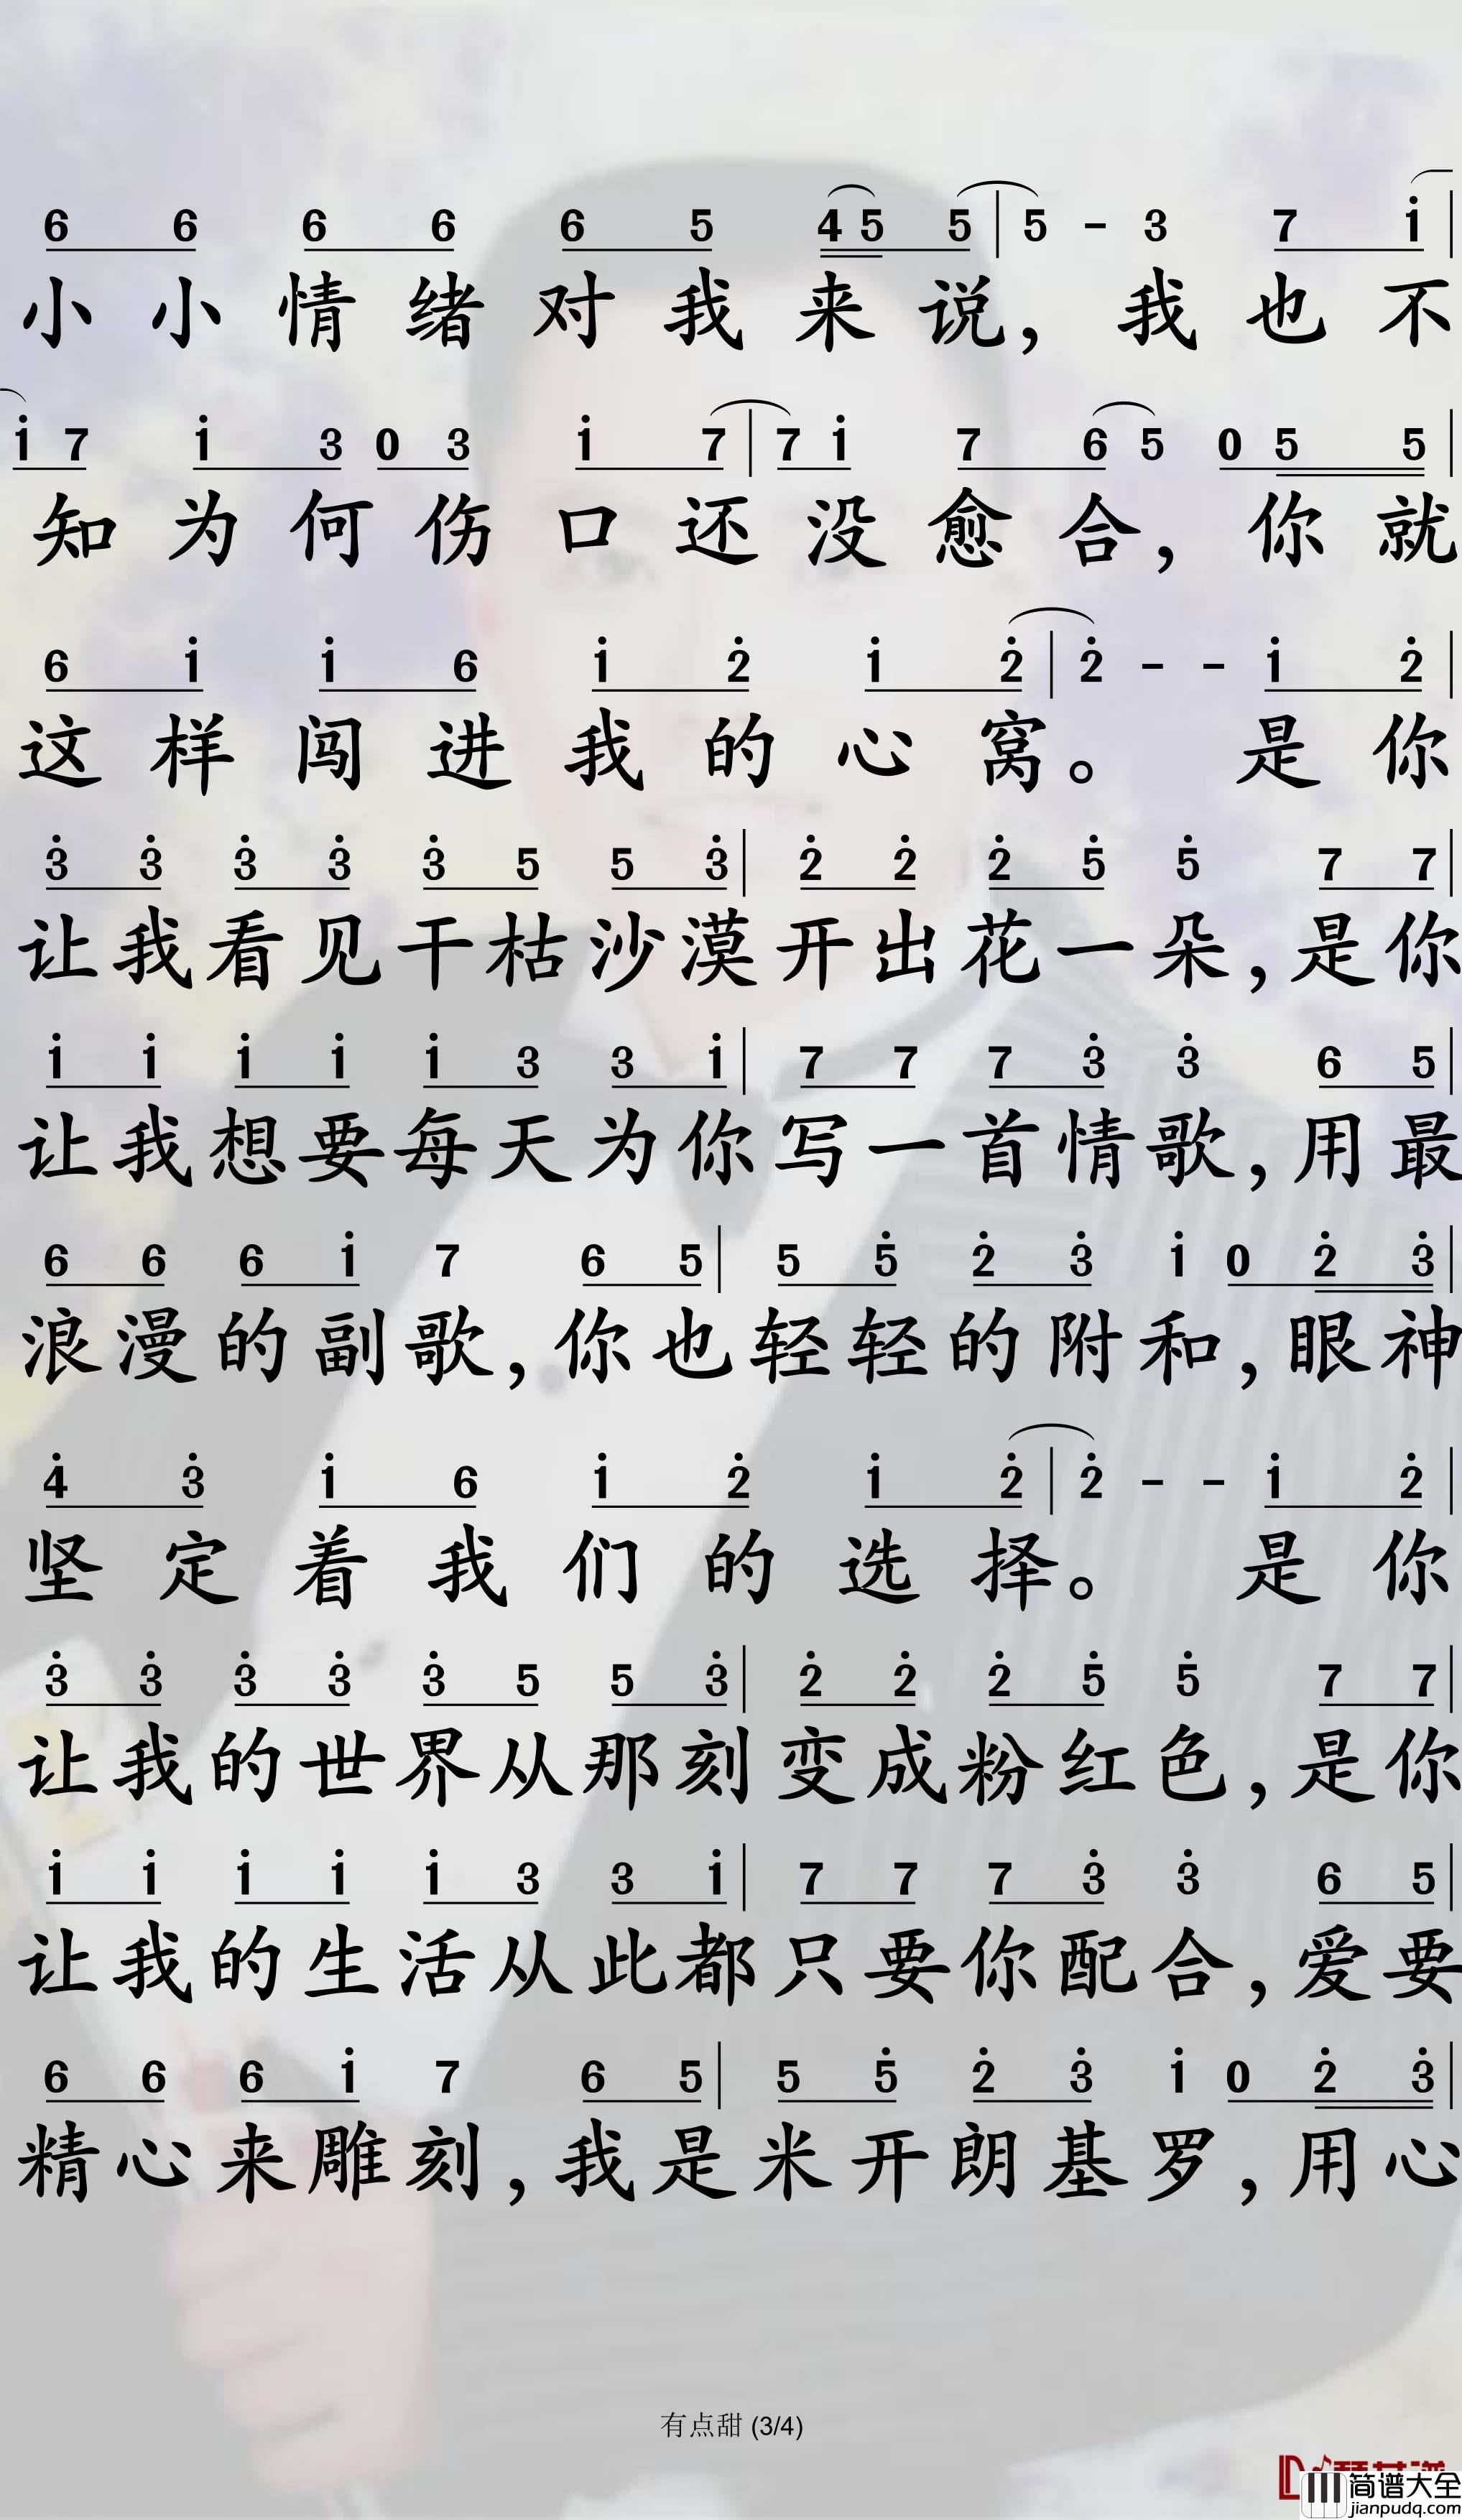 6 6 6 6 6 5 4 5 5 | 5 - 3 7 i |
小小情绪对我来说，我也不
i 7 i 3 0 3 i 7 | 7 i 7 6 5 0 5 5 |
知为何伤口还没愈合，你就
6 i i 6 i 2̇ i 2̇ | 2̇ - - i 2̇ |
这样闯进我的心窝。 是你
3̇ 3̇ 3̇ 3̇ 3̇ 5 5 3̇ | 2̇ 2̇ 2̇ 5̇ 5̇ 7 7 |
让我看见干枯沙漠开出花一朵，是你
i i i i i 3 3 i | 7 7 7 3̇ 3̇ 6 5 |
让我想要每天为你写一首情歌，用最
6 6 6 i 7 6 5 | 5 5̇ 2̇ 3̇ i 0 2̇ 3̇ |
浪漫的副歌，你也轻轻的附和，眼神
4̇ 3̇ i 6 i 2̇ i 2̇ | 2̇ - - i 2̇ |
坚定着我们的选择。 是你
3̇ 3̇ 3̇ 3̇ 3̇ 5 5 3̇ | 2̇ 2̇ 2̇ 5̇ 5̇ 7 7 |
让我的世界从那刻变成粉红色，是你
i i i i i 3 3 i | 7 7 7 3̇ 3̇ 6 5 |
让我的生活从此都只要你配合，爱要
6 6 6 i 7 6 5 | 5 5̇ 2̇ 3̇ i 0 2̇ 3̇ |
精心来雕刻，我是米开朗基罗，用心
有点甜 (3/4)
简谱大全
jianpudq.com